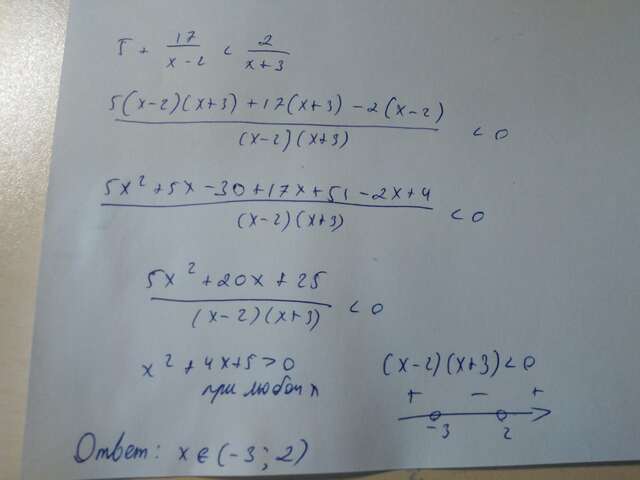 5 + 17/(x-2) < 2/(x+3)
(5(x-2)(x+3) + 17(x+3) - 2(x-2))/((x-2)(x+3)) < 0
(5x² + 5x - 30 + 17x + 51 - 2x + 4)/((x-2)(x+3)) < 0
(5x² + 20x + 25)/((x-2)(x+3)) < 0
x² + 4x + 5 > 0 (x-2)(x+3) < 0
при любом x + - +
-3 2
Ответ: x ∈ (-3; 2)